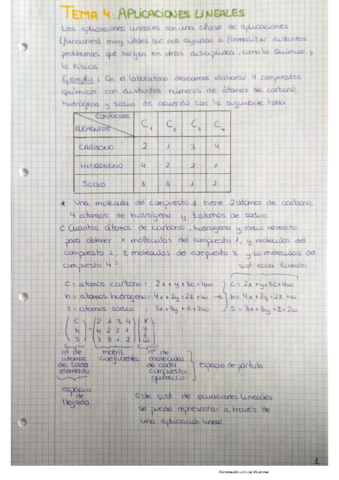 TEMA 4: APLICACIONES LINEALES
Las aplicaciones lineales son una clase de aplicaciones
(funciones) muy útiles que nos ayudan a formalizar distintos
problemas que surgen en otras disciplinas, como la Química y
la Física.
Ejemplo: En el laboratorio deseamos elaborar 4 compuestos
químicos con distintos números de átomos de carbono,
hidrógeno y sodio de acuerdo con la siguiente tabla
COMPUESTOS
ELEMENTOS C1 C2 C3 C4
CARBONO 2 1 3 4
HIDRÓGENO 4 2 2 1
SODIO 3 3 1 2
* Una molécula del compuesto 1 tiene 2 átomos de carbono,
4 átomos de hidrógeno y 3 átomos de sodio
¿Cuántos átomos de carbono, hidrógeno y sodio necesito
para obtener x moléculas del compuesto 1, y moléculas del
compuesto 2, z moléculas del compuesto 3 y w moléculas del
compuesto 4?
sist. ecua. lineales
C = átomos carbono = 2x + y + 3z + 4w
h = átomos hidrógeno = 4x + 2y + 2z + w →
S = átomos sodio = 3x + 3y + z + 2w
C = 2x + y + 3z + 4w
h = 4x + 2y + 2z + w
S = 3x + 3y + z + 2w
(C h S) = (2 1 3 4 4 2 2 1 3 3 1 2) (x y z w)
nº de átomos de cada elemento
matriz coeficientes
nº de moléculas de cada compuesto químico
espacio de partida
espacio de llegada
Este sist. de ecuaciones lineales
se puede representar a través de
una aplicación lineal
1